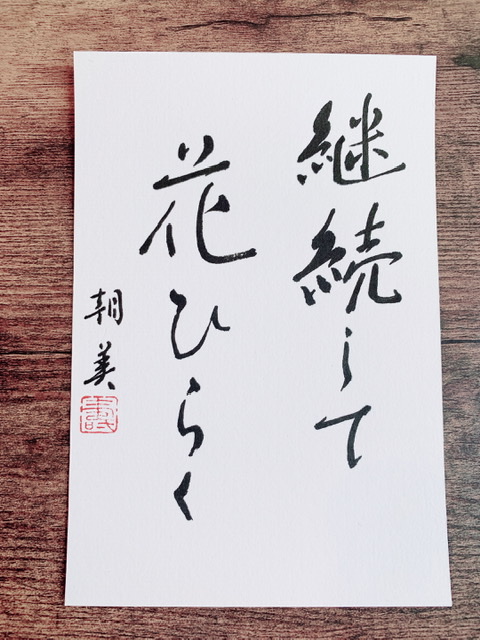 継続して
花ひらく
朝美